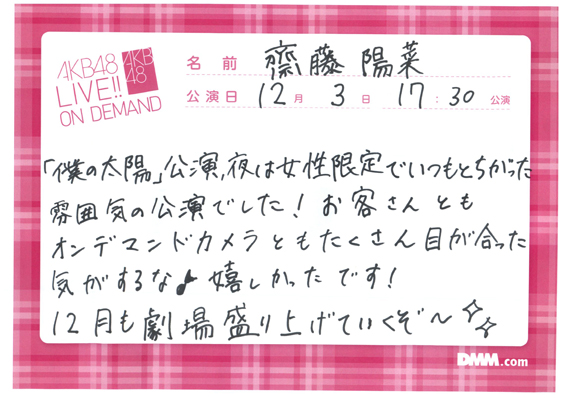 AKB48
LIVE!!
ON DEMAND
AKB
48
名前 齋藤 陽菜
公演日 12月 3日 17:30 公演
「僕の太陽」公演,夜は女性限定でいつもとちがった
雰囲気の公演でした!お客さんとも
オンデマンドカメラともたくさん目が合った
気がするな♪嬉しかったです!
12月も劇場盛り上げていくぞ〜
DMM.com